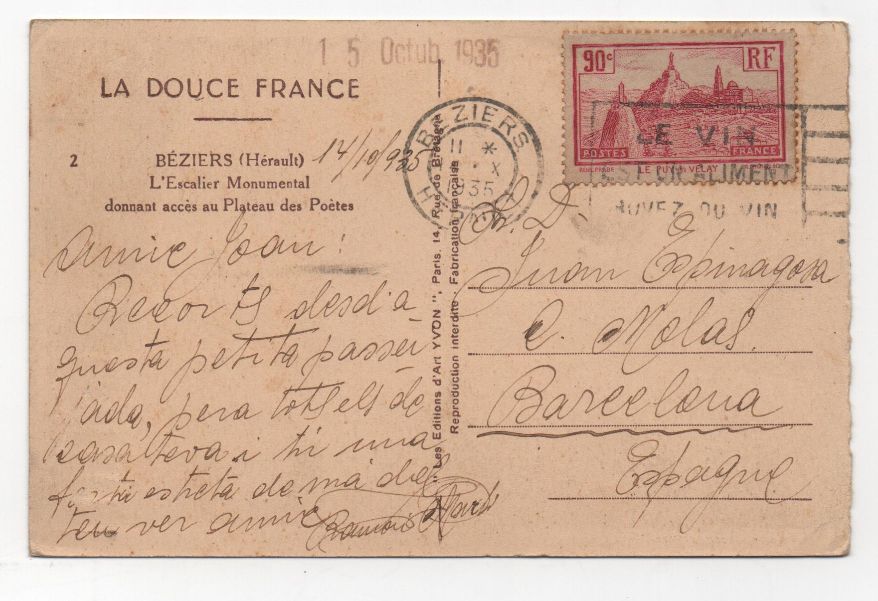 15 Octub 1935
LA DOUCE FRANCE
2
BÉZIERS (Hérault) 14/10/935
L'Escalier Monumental
donnant accès au Plateau des Poètes
Amic Joan!
Recorts desd'a
questa petita passei
jada, pera tots els de
casa teva i tu una
forta estreta de má del
teu ver amic
Ramón
"Les Editions d'Art YVON", Paris, 14, Rue de Bretagne
Reproduction interdite Fabrication française
90c RF
POSTES FRANCE
LE PUY EN VELAY
BÉZIERS
11 * X
1935
LE VIN
EST UN ALIMENT
BUVEZ DU VIN
Sr. D.
Juan Espinagosa
C. Molas.
Barcelona
Espagne